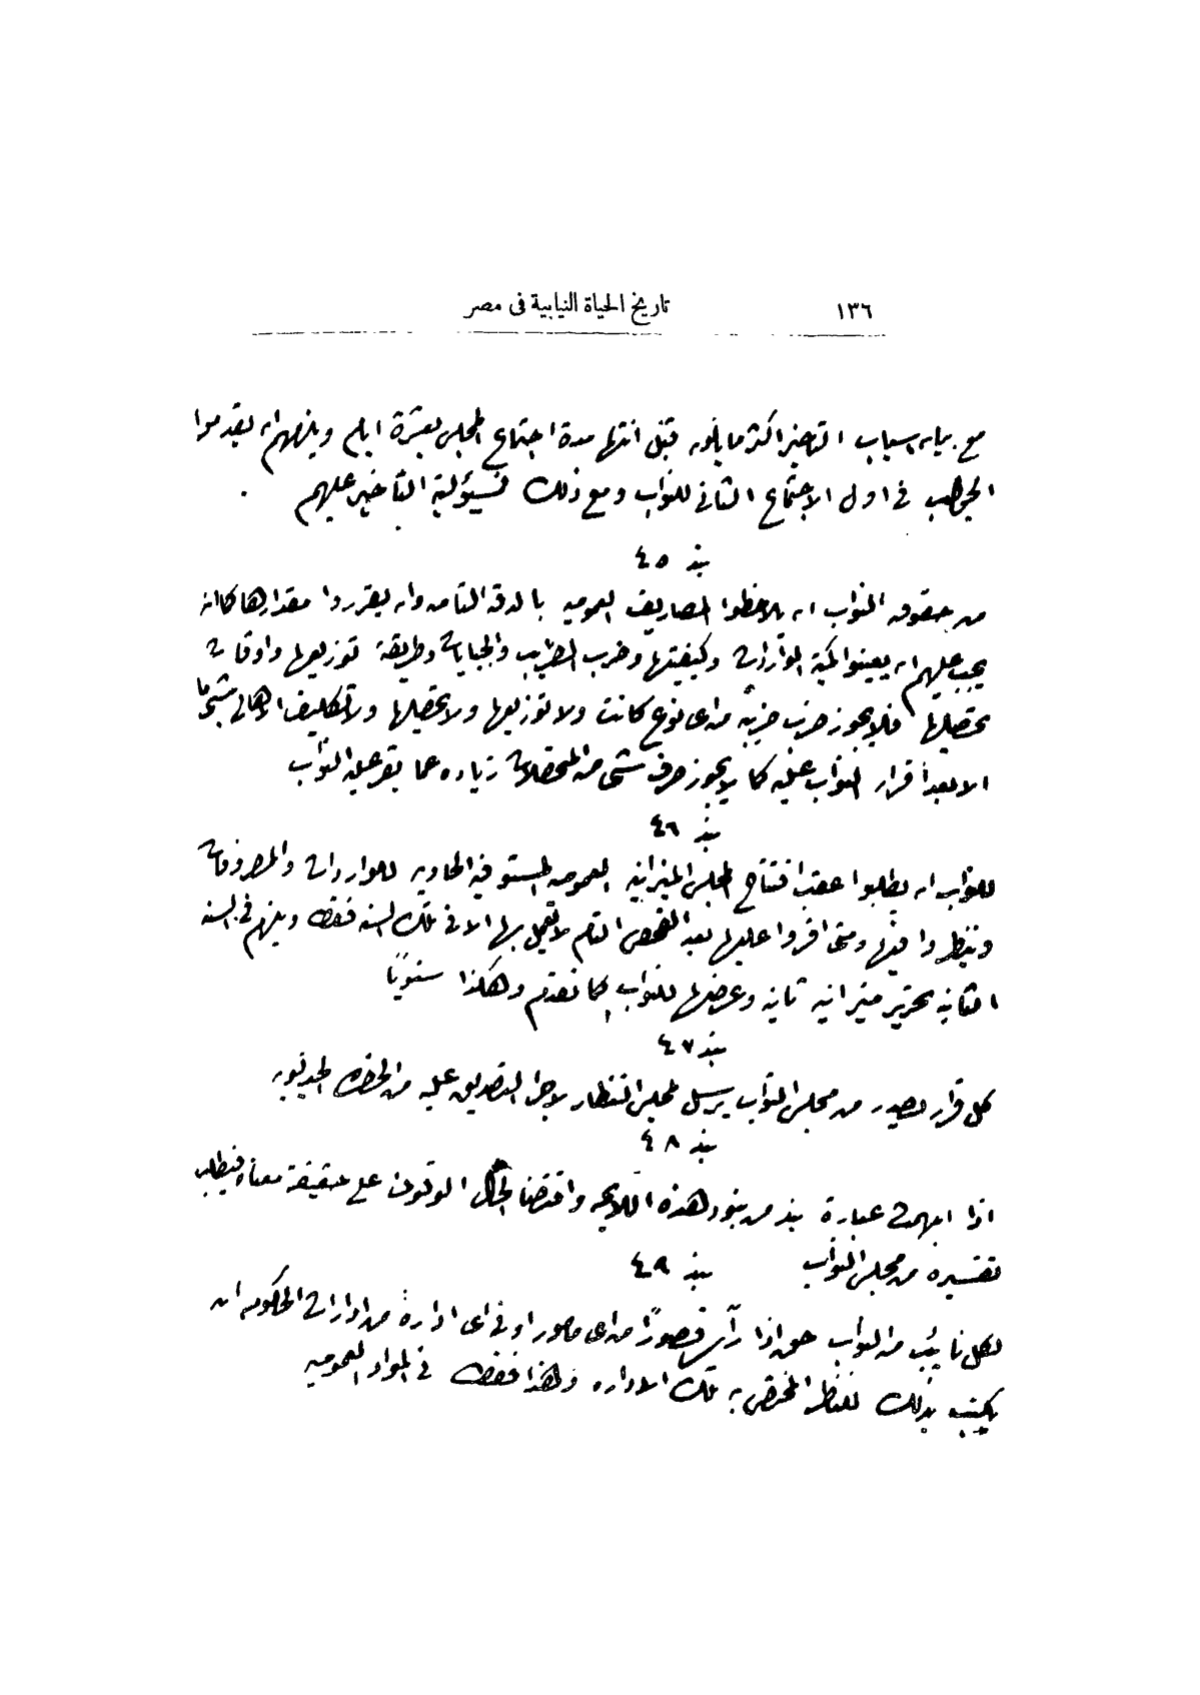 ١٣٦ تاريخ الحياة النيابية فى مصر
مع بيان اسباب التاخير اكثر ما يكون قبل انتها مدة اجتماع المجلس بعشرة ايام ويلزمهم ان يقدموا
الجواب فى اول الاجتماع الثانى للنواب ومع ذلك فمسؤلية التأخير عليهم
بند ٤٥
من حقوق النواب ان يلاحظوا المصاريف العموميه بالدقه التامه وان يقرروا مقدارها كما انه
يجب عليهم ان يعينوا كمية الواردات وكيفيتها وضرب الضرايب والجبايات وطريقة توزيعها واوقات
تحصيلها فلا يجوز ضرب ضريبه من اى نوع كانت ولا توزيعها ولا تحصيلها ولا تكليف الاهالى بشئ ما
الا بعد اقرار النواب عليه كما لا يجوز صرف شئ من المتحصلات زياده عما يقر عليه النواب
بند ٤٦
للنواب ان يطلبوا عقب افتتاح المجلس الميزانيه العموميه المستوفيه الحاويه للواردات والمصروفات
وينظروا فيها ومتى اقروا عليها بعد الفحص التام لا يعمل بها الا فى تلك السنه فقط ويلزم فى السنه
الثانيه تحرير ميزانيه ثانيه وعرضها للنواب كما تقدم وهكذا سنويًا
بند ٤٧
كل قرار يصدر من مجلس النواب يرسل لمجلس النظار لاجرا التصديق عليه من الحضره الخديويه
بند ٤٨
اذا ابهمت عبارة بند من بنود هذه اللايحه واقتضا الحال الوقوف على حقيقة معناه فيطلب
تفسيره من مجلس النواب
بند ٤٩
لكل نايب من النواب حق اذا رآى قصورًا من اى مامور او فى اى ادارة من ادارات الحكومه ان
يكتب بذلك للناظر المختص به تلك الاداره وهذا فقط فى المواد العموميه